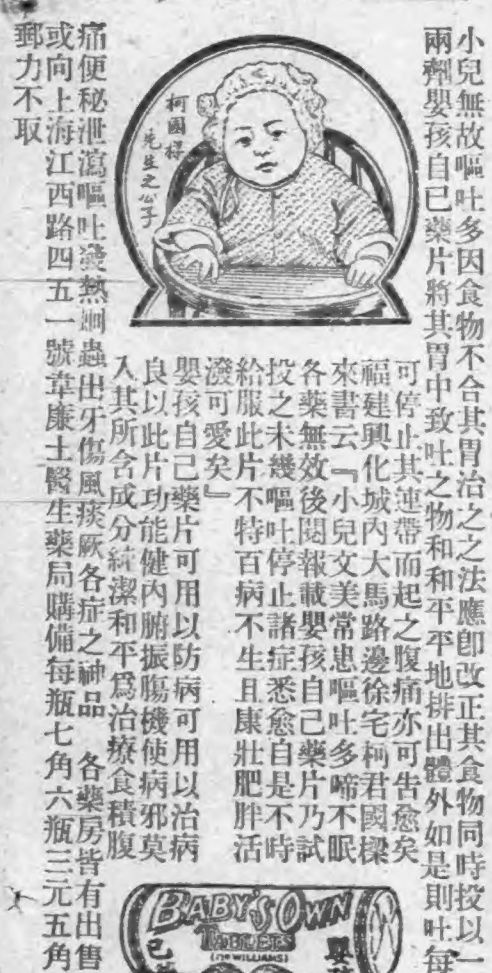 小兒無故嘔吐多因食物不合其胃治之之法應卽改正其食物同時投以一
兩劑嬰孩自己藥片將其胃中致吐之物和和平平地排出體外如是則吐每
可停止其連帶而起之腹痛亦可吿愈矣
福建興化城內大馬路邊徐宅柯君國樑
來書云『小兒文美常患嘔吐多啼不眠
各藥無效後閱報載嬰孩自己藥片乃試
投之未幾嘔吐停止諸症悉愈自是不時
給服此片不特百病不生且康壯肥胖活
潑可愛矣』
嬰孩自己藥片可用以防病可用以治病
良以此片功能健內腑振腸機使病邪莫
入其所含成分純潔和平爲治療食積腹
痛便秘泄瀉嘔吐發熱蛔蟲出牙傷風痰厥各症之神品 各藥房皆有出售
或向上海江西路四五一號韋廉士醫生藥局購備每瓶七角六瓶三元五角
郵力不取
柯國樑
先生之公子
BABY'S OWN
TABLETS
(DR WILLIAMS)
嬰
己